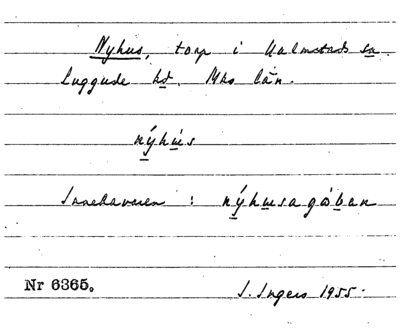 Nyhus, torp i Kalmstads sn.
Luggude hd. Mhs län.
nýhús
Innehavaren : nýhusagóban
Nr 6365. I. Ingers 1955.